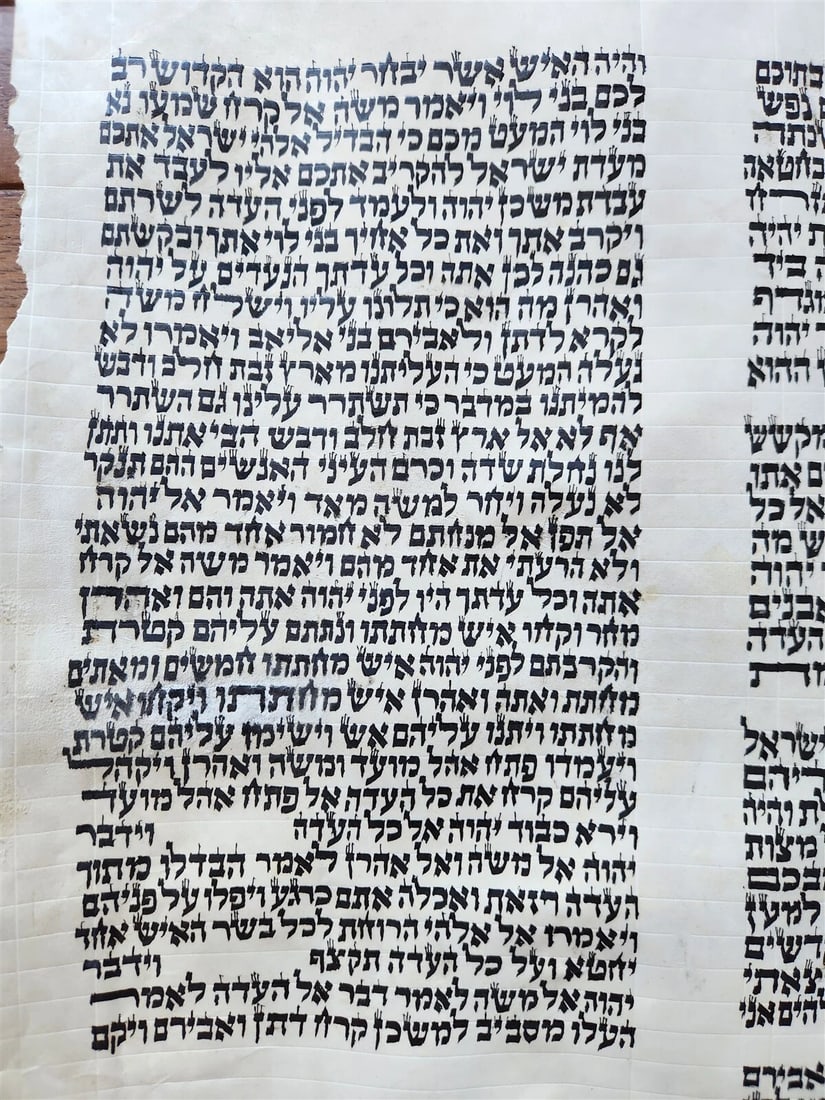 בתוכם
נפש
בחטאה
יהיה
ביד
מגדף
יהוה
ההוא
מקשש
אתו
אל כל
מה
יהוה
אבנים
העדה
ישראל
והיה
מצות
למען
אני
אבירם
והיה האיש אשר יבחר יהוה הוא הקדוש רב
לכם בני לוי ויאמר משה אל קרח שמעו נא
בני לוי המעט מכם כי הבדיל אלהי ישראל אתכם
מעדת ישראל להקריב אתכם אליו לעבד את
עבדת משכן יהוה ולעמד לפני העדה לשרתם
ויקרב אתך ואת כל אחיך בני לוי אתך ובקשתם
גם כהנה לכן אתה וכל עדתך הנעדים על יהוה
ואהרן מה הוא כי תלונו עליו וישלח משה
לקרא לדתן ולאבירם בני אליאב ויאמרו לא
נעלה המעט כי העליתנו מארץ זבת חלב ודבש
להמיתנו במדבר כי תשתרר עלינו גם השתרר
אף לא אל ארץ זבת חלב ודבש הביאתנו ותתן
לנו נחלת שדה וכרם העיני האנשים ההם תנקר
לא נעלה ויחר למשה מאד ויאמר אל יהוה
אל תפן אל מנחתם לא חמור אחד מהם נשאתי
ולא הרעתי את אחד מהם ויאמר משה אל קרח
אתה וכל עדתך היו לפני יהוה אתה והם ואהרן
מחר וקחו איש מחתתו ונתתם עליהם קטרת
והקרבתם לפני יהוה איש מחתתו חמשים ומאתים
מחתת ואתה ואהרן איש מחתתו ויקחו איש
מחתתו ויתנו עליהם אש וישימו עליהם קטרת
ויעמדו פתח אהל מועד ומשה ואהרן ויקהל
עליהם קרח את כל העדה אל פתח אהל מועד
וירא כבוד יהוה אל כל העדה וידבר
יהוה אל משה ואל אהרן לאמר הבדלו מתוך
העדה הזאת ואכלה אתם כרגע ויפלו על פניהם
ויאמרו אל אלהי הרוחת לכל בשר האיש אחד
יחטא ועל כל העדה תקצף וידבר
יהוה אל משה לאמר דבר אל העדה לאמר
העלו מסביב למשכן קרח דתן ואבירם ויקם